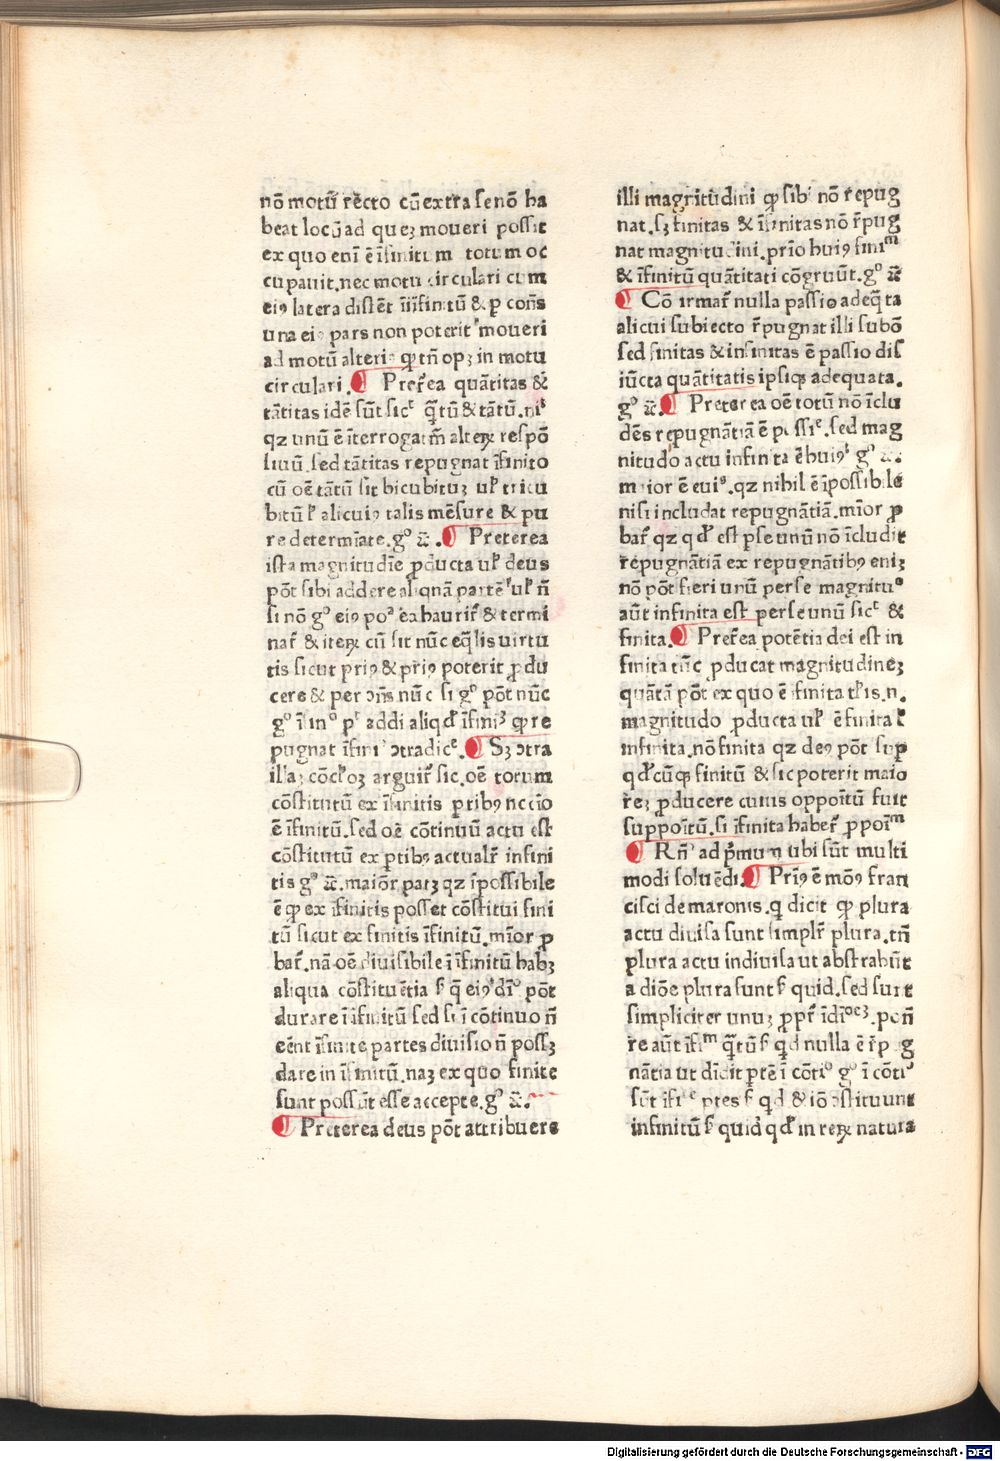 nō motū rēcto cū extra se nō ha
beat locū ad quez moueri possit
ex quo eni ē ifinitum totum oc
cupauit. nec motu circulari cum
eiꝰ latera distēt iifinitū & p cōns
una eiꝰ pars non poterit moueri
ad motū alteriꝰ ꝙ tn̄ opꝫ in motu
circulari. ¶ Preterea quātitas &
tātitas idē sūt sicᵗ q̄tū & tātū. niˢ
qz unū ē īterrogatiū alteꝝ respō
siuū. sed tātitas repugnat īfinito
cū oē tātū sit bicubituꝫ uꝉ tricu
bitū uꝉ alicuiꝰ talis mēsure & pu
re determīate. gᵒ ⁊c̄. ¶ Preterea
ista magnitudīe ꝓducta uꝉ deus
pōt sibi addere aliquā partē uꝉ n̄
si nō gᵒ eiꝰ poᵃ exhaurir̄ & termi
nar̄ & iteꝝ cū sit nūc eq̄lis uirtu
tis sicut priꝰ & priꝰ poterit ꝓdu
cere & per ↄn̄s nūc si gᵒ pōt nūc
gᵒ īfinᵒ pᵗ addi aliqd īfiniꝫ ꝙ re
pugnat īfiniᵗ ↄtradicᵉ. ¶ Sꝫ ↄtra
illaꝫ cōcꝉoꝫ arguir̄ sic. oē totum
cōstitutū ex īfinitis ꝑtibꝰ necio
ē īfinitū. sed oē cōtinuū actu est
cōstitutū ex ꝑtibꝰ actualr̄ infini
tis gᵒ ⁊c̄. maior̄ patꝫ qz īpossibile
ē ꝙ ex ifinitis posset cōstitui fini
tū sicut ex finitis īfinitū. mīor ꝓ
bar̄. nā oē diuisibile ī īfinitū habꝫ
aliqua cōstituētia ẜ q̄ eiꝰ dīᵒ pōt
durare ī īfinitū sed si ī cōtinuo n̄
eēnt īfinite partes diuisio n̄ possꝫ
dare in īfinitū. naꝫ ex quo finite
sunt possūt esse accepte. gᵒ ⁊c̄.
¶ Preterea deus pōt attribuere
illi magnitudini ꝙ sibi nō repug
nat. sꝫ finitas & īfinitas nō r̄pug
nat magnitudini. prio huiꝰ finiᵐ
& īfinitū quātitati cōgruūt. gᵒ ⁊c̄
¶ Cōfirmar̄ nulla passio adeq̄ta
alicui subiecto r̄pugnat illi subō
sed finitas & infinitas ē passio dis
iūcta quātitatis ipsiqꝫ adequata.
gᵒ ⁊c̄. ¶ Preterea oē totū nō īclu
dēs repugnātiā ē possiᵉ. sed mag
nitudo actu infinita ē huiꝰ gᵒ ⁊c̄.
maior ē euiˢ. qz nihil ē īpossibile
nisi includat repugnātiā. mīor ꝓ
bar̄ qz qd est ꝑse unū nō īcludit
repugnātiā ex repugnātibꝰ eniꝫ
nō pōt fieri unū perse magnituᵒ
aūt infinita est perse unū sicᵗ &
finita. ¶ Preterea potētia dei est in
finita tūc ꝓducat magnitudineꝫ
quātā pōt ex quo ē ifinita tꝉis. n.
magnitudo ꝓducta uꝉ ē finita uꝉ
infinita. nō finita qz deꝰ pōt sup
qdcūqꝫ finitū & sic poterit maio
reꝫ ꝓducere cuius oppoitū fuit
suppoitū. si īfinita habet ꝓpoiᵐ
¶ Rn̄ᵒ ad pm̄um ubi sūt multi
modi soluēdi. ¶ Priꝰ ē moꝰ fran
cisci de maronis. q dicit ꝙ plura
actu diuisa sunt simplr̄ plura. tn̄
plura actu indiuisa ut abstrahūt
a diōe plura sunt ẜ quid. sed sunt
simpliciter unuꝫ ꝓpr̄ īdīoeꝫ. ponē
re aūt īfiᵐ q̄tū ẜ qd nulla ē r̄pug
nātia ut dīcit ꝑtē ī cōtiᵒ gᵒ ī cōtiᵒ
sūt īfiᵉ ptes ẜ qd & iō ↄstituunt
infinitū ẜ quid qd in reꝝ natura
Digitalisierung gefördert durch die Deutsche Forschungsgemeinschaft - DFG